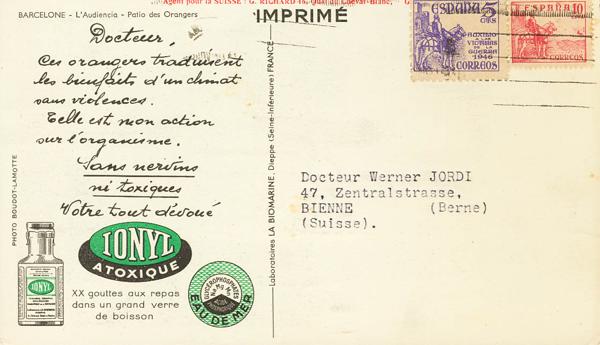 Agent pour la SUISSE : G. RICHARD
BARCELONE - L'Audiencia - Patio des Orangers
IMPRIMÉ
Docteur,
Ces orangers traduisent
les bienfaits d'un climat
sans violences.
Telle est mon action
sur l'organisme.
Sans nervins
ni toxiques
Votre tout dévoué
PHOTO BOUDOT-LAMOTTE
IONYL
ATOXIQUE
IONYL
XX gouttes aux repas
dans un grand verre
de boisson
GLYCÉROPHOSPHATES
EAU DE MER
Laboratoires LA BIOMARINE, Dieppe (Seine-Inférieure) FRANCE
ESPAÑA 5
CTS
AUXILIO
A LAS
VICTIMAS
DE LA
GUERRA
1946
CORREOS
ESPAÑA 10
CORREOS
Docteur Werner JORDI
47, Zentralstrasse,
BIENNE (Berne)
(Suisse).